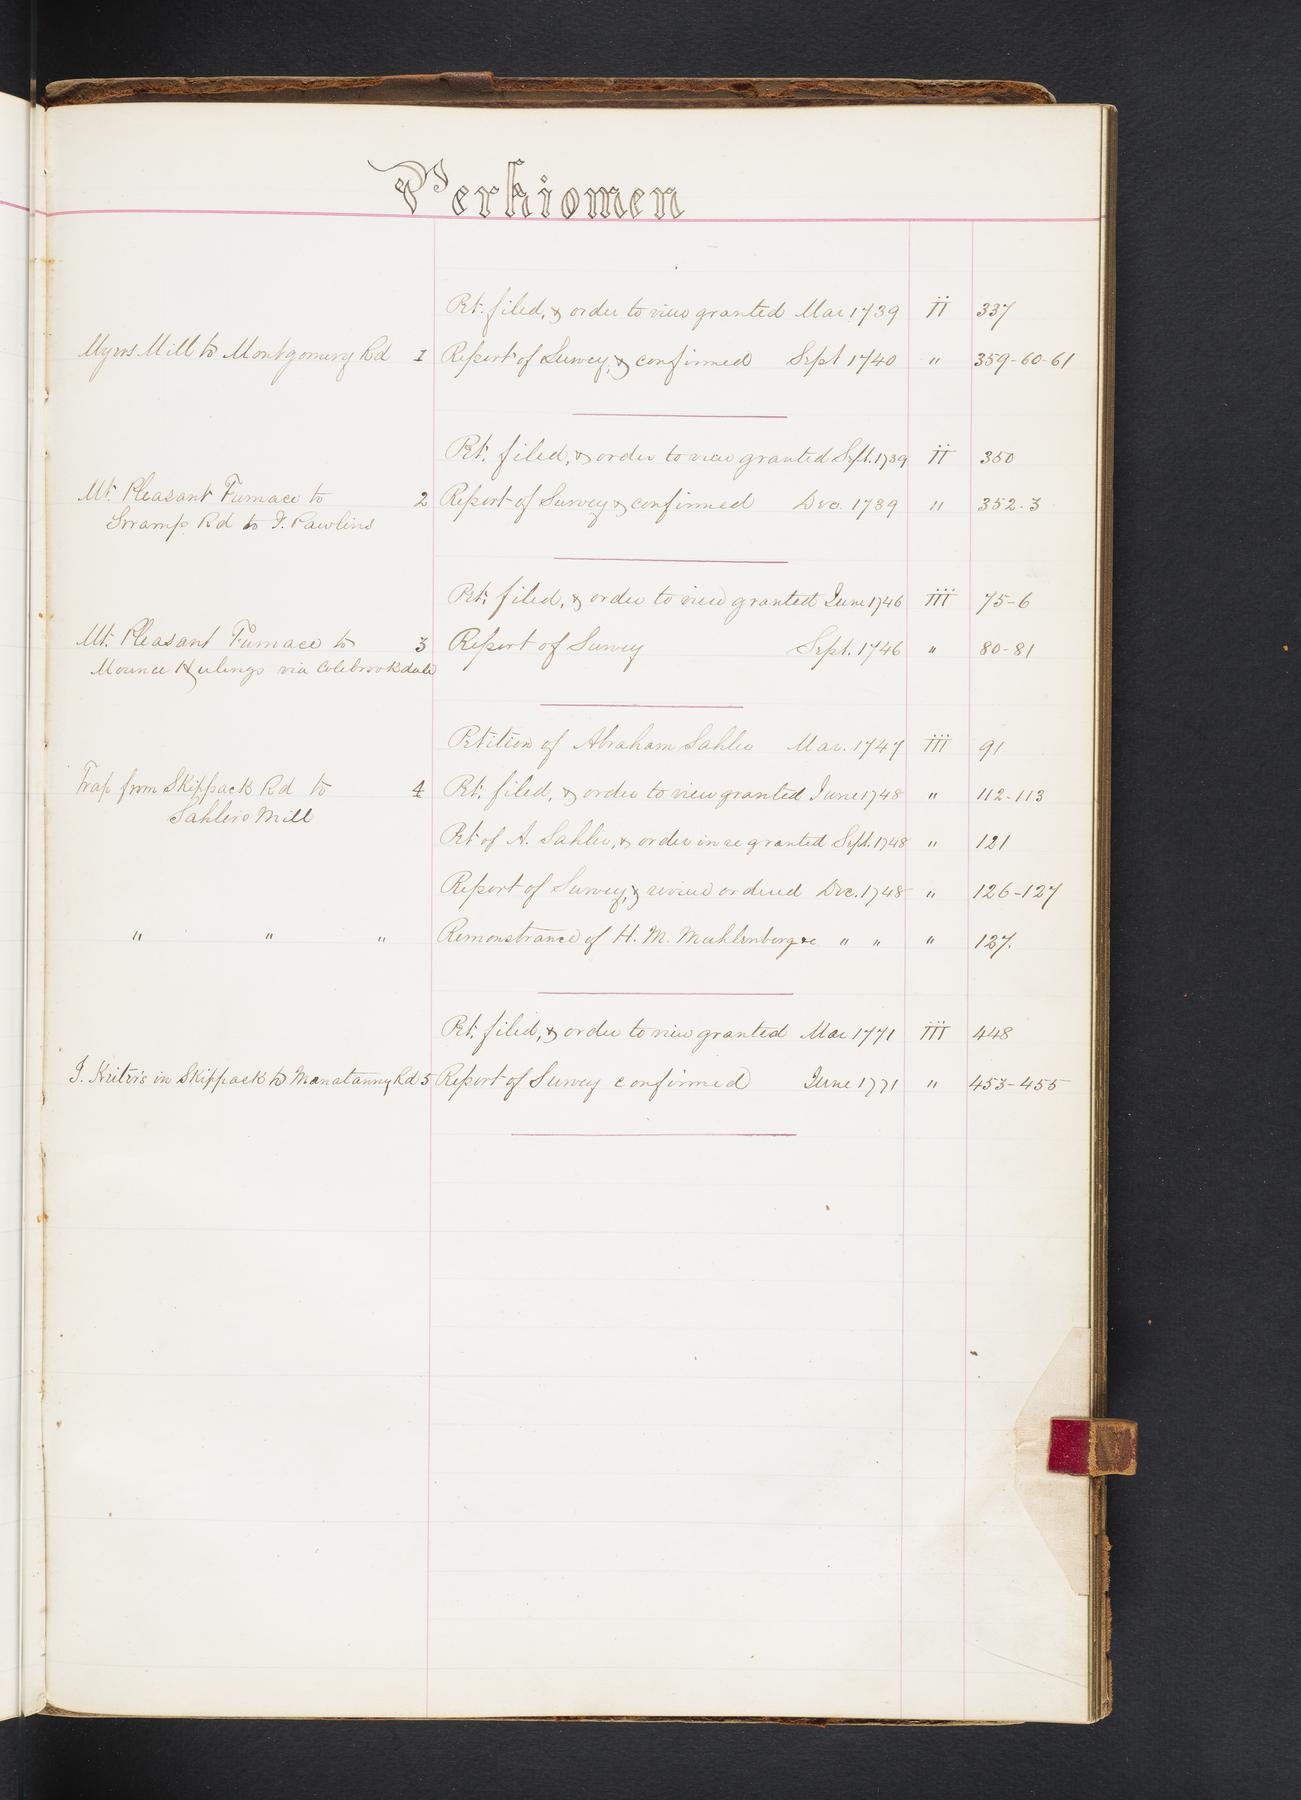 Perkiomen
Pet. filed, & order to view granted Mar 1739 II 337
Myers Mill to Montgomery Rd 1 Report of Survey, & confirmed Sept 1740 " 359-60-61
Pet. filed, & order to view granted Sept. 1739 II 350
Mt. Pleasant Furnace to 2 Report of Survey & confirmed Dec. 1739 " 352-3
Swamp Rd to J. Pawlins
Pet. filed, & order to view granted June 1746 III 75-6
Mt. Pleasant Furnace to 3 Report of Survey Sept. 1746 " 80-81
Mounce Hulings via Colebrookdale
Petition of Abraham Sahler Mar. 1747 III 91
Trap from Skippack Rd to 4 Pet. filed, & order to view granted June 1748 " 112-113
Sahlers Mill
Pet of A. Sahler, & order in re granted Sept. 1748 " 121
Report of Survey, & review ordered Dec. 1748 " 126-127
" " " Remonstrance of H. M. Muhlenberg &c " " " 127.
Pet. filed, & order to view granted Mar 1771 III 448
J. Keiter's in Skippack to Manatanny Rd 5 Report of Survey confirmed June 1771 " 453-455